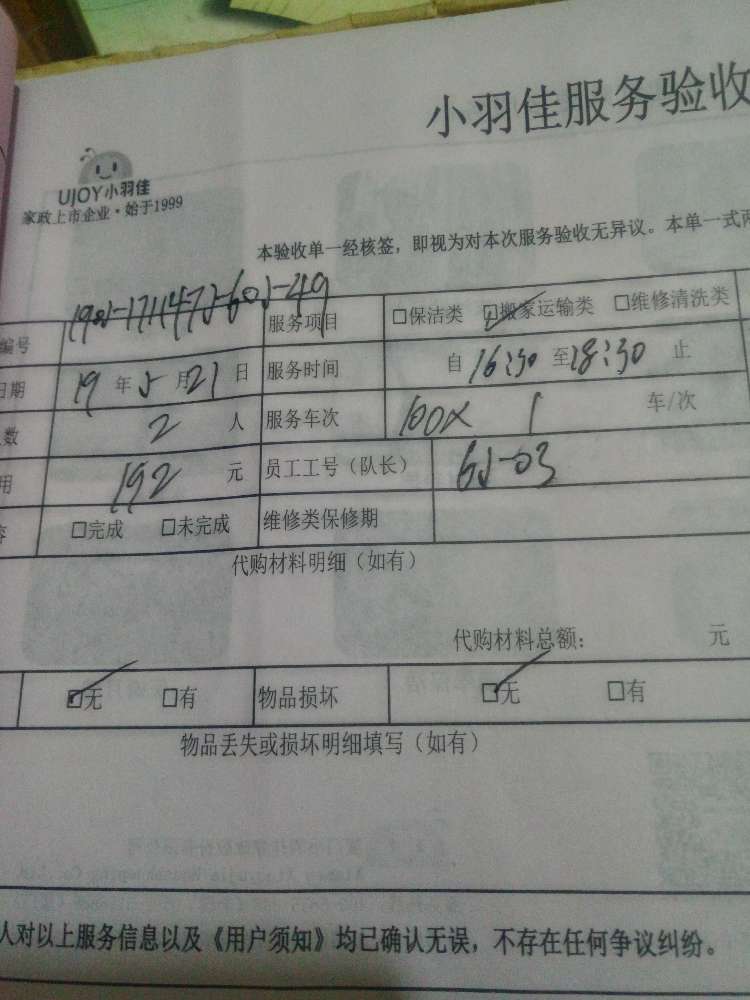 小羽佳服务验收
UJOY小羽佳
家政上市企业·始于1999
本验收单一经核签，即视为对本次服务验收无异议。本单一式两
编号 服务项目 □保洁类 ☑搬家运输类 □维修清洗类
日期 19年5月21日 服务时间 自16:30至18:30止
数 2人 服务车次 1 车/次
用 192元 员工工号（队长） 65-03
□完成 □未完成 维修类保修期
代购材料明细（如有）
代购材料总额： 元
☑无 □有 物品损坏 ☑无 □有
物品丢失或损坏明细填写（如有）
人对以上服务信息以及《用户须知》均已确认无误，不存在任何争议纠纷。